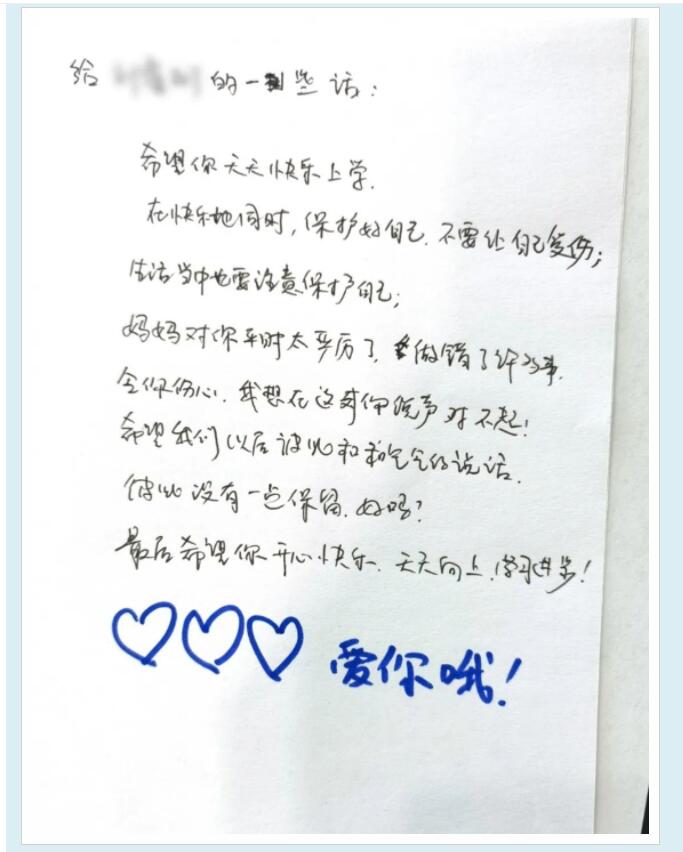 给 的一些话:
希望你天天快乐上学.
在快乐地同时,保护好自己.不要让自己受伤;
生活当中也要注意保护自己;
妈妈对你平时太严厉了,做错了许多事.
令你伤心.我想在这对你说声对不起!
希望我们以后彼此和和气气的说话.
彼此没有一点保留.好吗?
最后希望你开心快乐.天天向上.学习进步!
爱你哦!